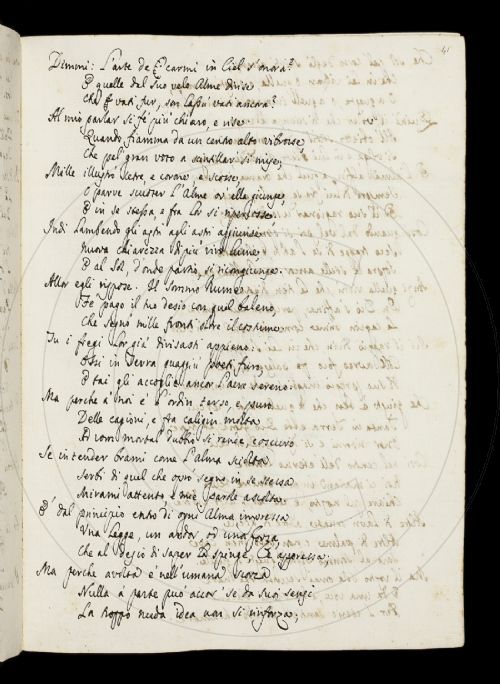 41
Dimmi: L'arte de' carmi in Ciel s'onora?
E quelle dal suo velo Alme divise
Che vati fur, son lassù vati ancora?
Al mio parlar si fè più chiaro, e rise
Quando fiamma da un cento alto vibrosse
Che pel gran voto a scintillar si mise;
Mille illustri cetre, e corone, e scosse
O parve scuoter l'Alme ov' ella giunge,
E in se stessa, e fra lor si ripercosse
Indi lambendo gli astri agli astri aggiunse
Nuova chiarezza di più vivo lume
E al Sol, d'onde partio, si ricongiunge.
Allor egli rispose. Il sommo Nume
Fè pago il tuo desio con quel baleno,
Che segnò mille fronti oltre il costume.
Tu i fregi lor già divisasti appieno:
Essi in Terra quaggiù Poeti furo,
E tai gli accoglie ancor l'aere sereno.
Ma perchè a noi è l'ordin terso, e puro
Delle cagioni, e fra caligin molta
Ad uom mortal dubbio si rende, e oscuro
Se intender brami come l'alma sciolta
Serbi di quel che oprò segno in se stessa
Mirami attento e mie parole ascolta.
È dal principio entro di ogni Alma impressa
Una Legge, un ardor, od una forza,
Che al desio di saper La spinge, e appressa;
Ma perchè avvolta è nell' umana scorza
Nulla a parte può accor' se da' suoi sensi
La troppo nuda idea non si rinforza;